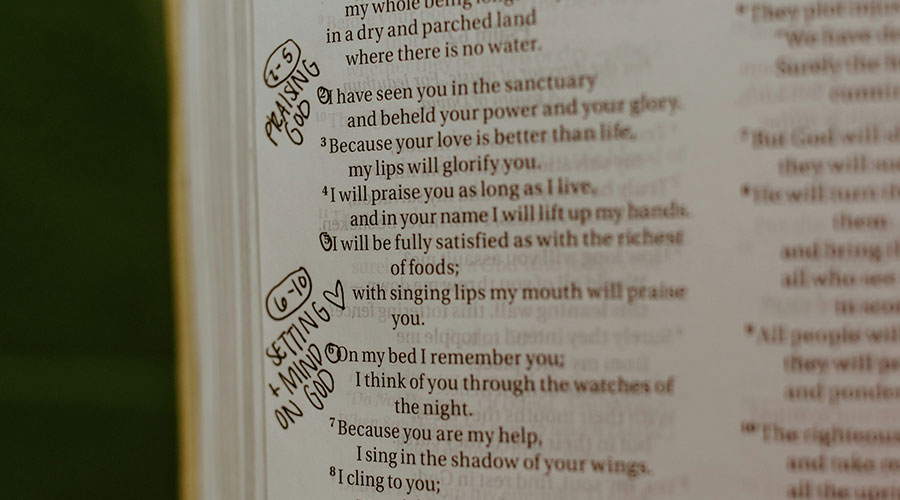 my whole being longs
in a dry and parched land
where there is no water.
2-5
PRAISING
GOD
2 I have seen you in the sanctuary
and beheld your power and your glory.
3 Because your love is better than life,
my lips will glorify you.
4 I will praise you as long as I live,
and in your name I will lift up my hands.
5 I will be fully satisfied as with the richest
of foods;
with singing lips my mouth will praise
you.
6-10
SETTING ♡
+ MIND
ON GOD
6 On my bed I remember you;
I think of you through the watches of
the night.
7 Because you are my help,
I sing in the shadow of your wings.
8 I cling to you;
They plot
"We have
Surely the
But God will
they will
He will turn
them
and bring
all who see
9 All people will
they will
and ponder
10 The righteous
and take
all the